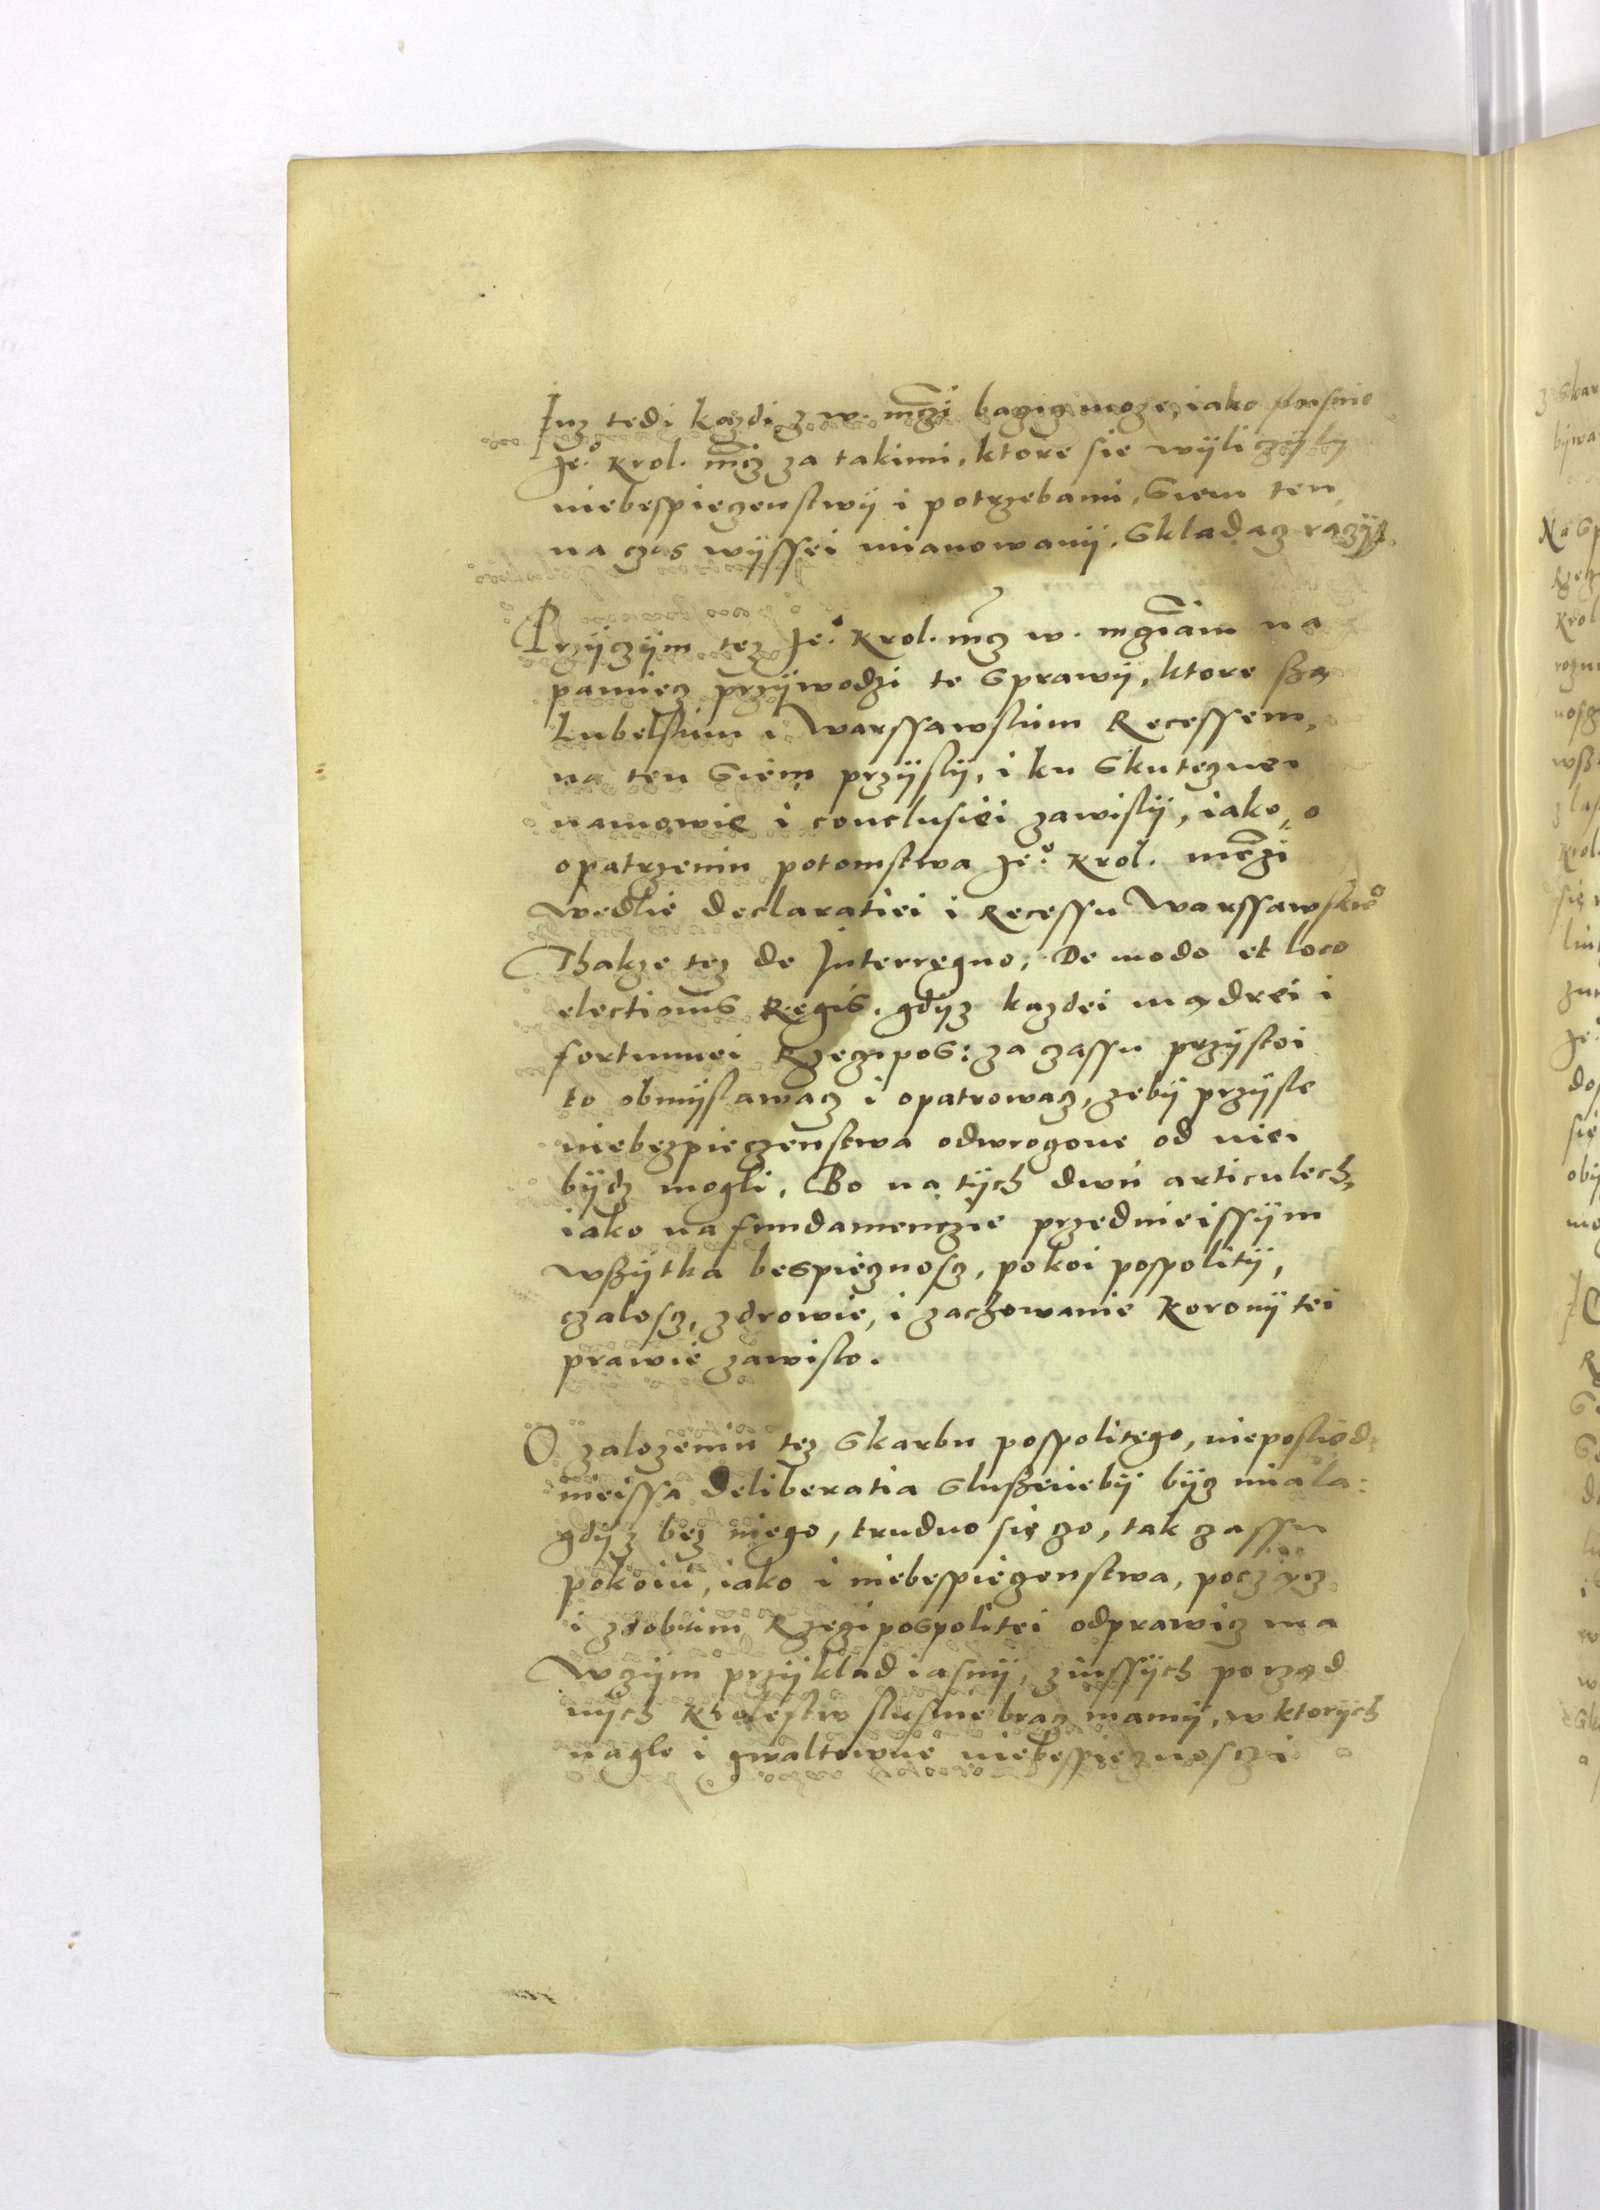 Iuz tedi kazdi z w. mczi baczicz moze, iako słusnie
Je° Krol. mcz za takimi, ktore sie wÿliczÿly
niebespieczenstwÿ i potrzebami, Siem ten
na czas wÿssei mianowanÿ, Skladacz raczÿ.
Przÿczÿm tez Je° Krol. mcz w. mcziam na
pamiecz przÿwodzi te Sprawÿ, ktore ssą
Lubelskim i Warssawskim Recessem,
na ten Siem przÿslÿ, i ku Skutecznei
namowie i conclusiei zawislÿ, iako, o
opatrzeniu potomstwa Je° Krol. mczi
wedlie declaratiei i Recessu Warssawskie°
Thakze tez de Interregno, De modo et loco
electionis Regis, gdÿz kazdei mądrei i
fortunnei Rzeczipos: za czassu przÿstoi
to obmÿslawacz i opatrowacz, zebÿ przÿsle
niebezpieczenstwa odwrogone od niei
bÿdz mogli, Bo na tÿch dwu articulech,
iako na fundamenczie przednieissÿm
wssÿtka bespiecznoscz, pokoi pospolitÿ,
czaloscz, zdrowie, i zachowanie Koronÿ tei
prawie zawislo.
O zalozeniu tez Skarbu pospolitego, nieposlied=
nieissa deliberatia Slussniebÿ bÿcz miala:
gdÿz bez niego, trudno się czo, tak czassu
pokoiu, iako i niebespieczenstwa, począcz
i zdobrim Rzeczipospolitei odprawicz ma
W czÿm przÿklad iasnÿ, z inssÿch porząd
nÿch Krolestw slusnie bracz mamÿ, w ktorÿch
nagle i gwaltowne niebespiecznosczi